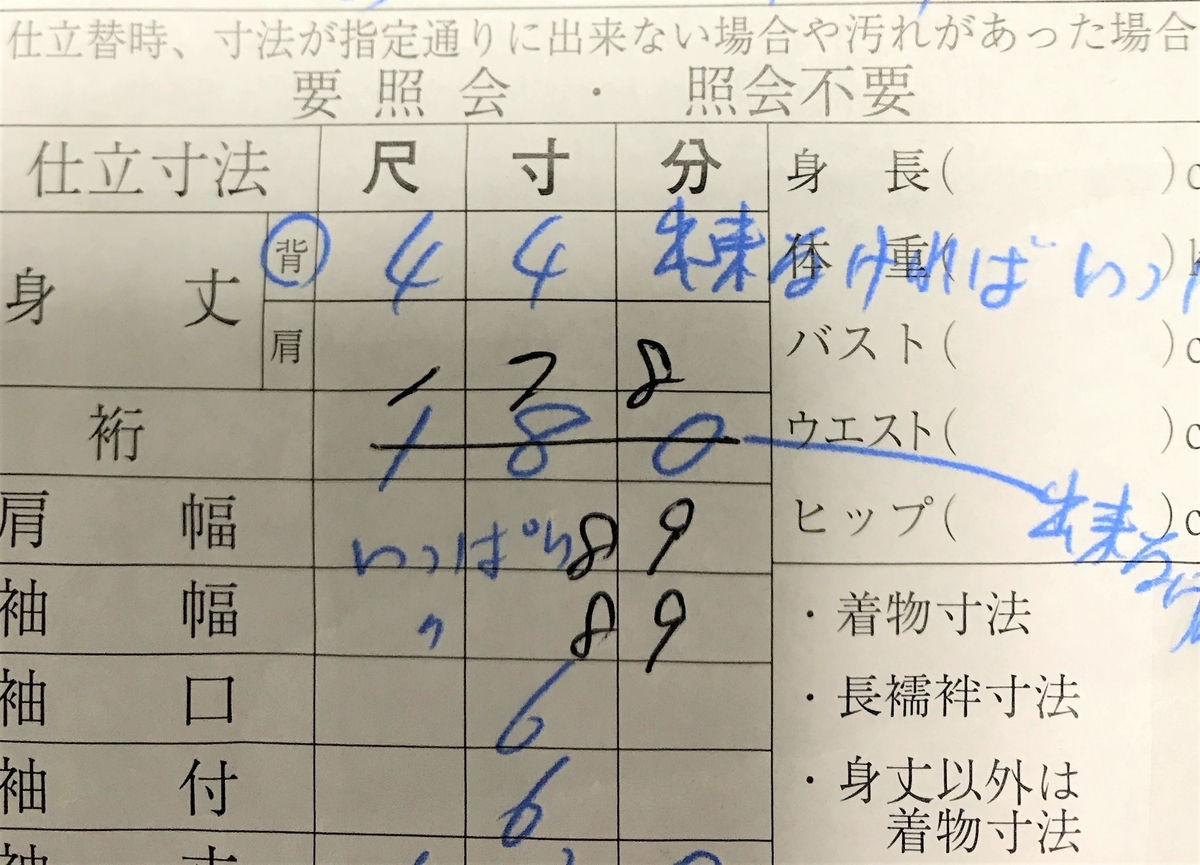 仕立替時、寸法が指定通りに出来ない場合や汚れがあった場合
要照会・照会不要
仕立寸法 尺 寸 分
身丈 背 4 4 来なければいっ
肩
1 7 8
裄 1 8 0
肩幅 いっぱい 8 9
袖幅 〃 8 9
袖口 6
袖付 6
身長( )c
体重( )k
バスト( )c
ウエスト( )c
ヒップ( )c
・着物寸法
・長襦袢寸法
・身丈以外は
着物寸法